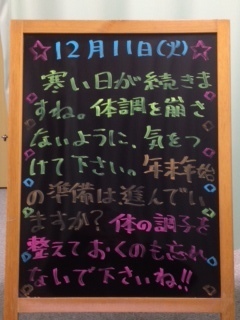 ☆12月11日(火)☆
寒い日が続きま
すね。体調を崩さ
ないように、気をつ
けて下さい。年末年始
の準備は進んでい
ますか?体の調子を
整えておくのも忘れ
ないで下さいね!!